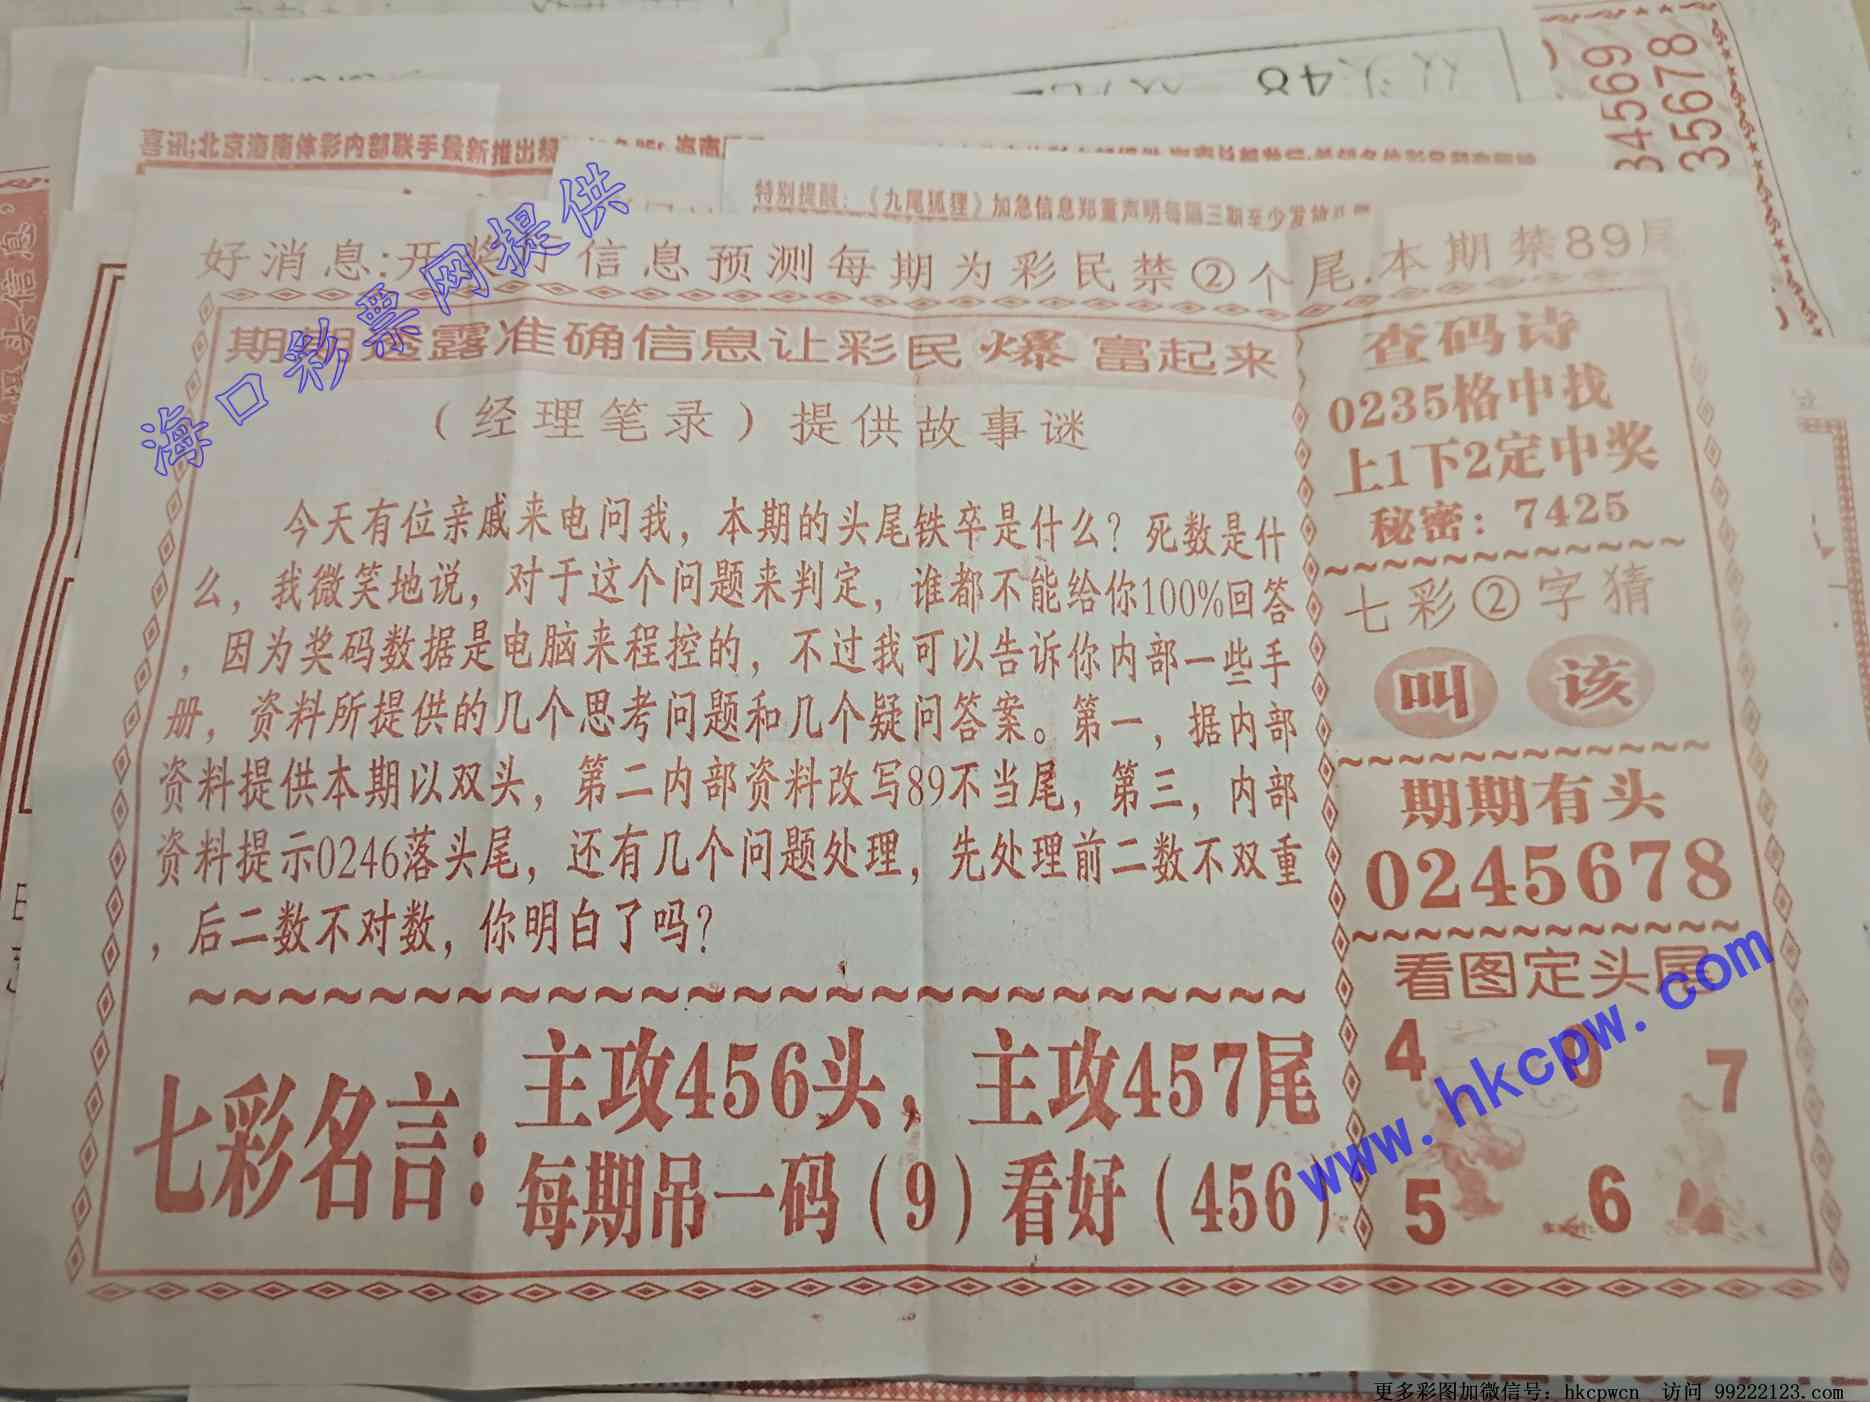 34569
35678
双头48
喜讯:北京海南体彩内部联手最新推出
特别提醒:《九尾狐狸》加急信息郑重声明每隔三期至少发
头信息,
好消息:开奖了信息预测每期为彩民禁②个尾.本期禁89尾
期期透露准确信息让彩民爆富起来
(经理笔录)提供故事谜
今天有位亲戚来电问我,本期的头尾铁卒是什么?死数是什
么,我微笑地说,对于这个问题来判定,谁都不能给你100%回答
,因为奖码数据是电脑来程控的,不过我可以告诉你内部一些手
册,资料所提供的几个思考问题和几个疑问答案。第一,据内部
资料提供本期以双头,第二内部资料改写89不当尾,第三,内部
资料提示0246落头尾,还有几个问题处理,先处理前二数不双重
,后二数不对数,你明白了吗?
七彩名言:
主攻456头,主攻457尾
每期吊一码(9)看好(456)
查码诗
0235格中找
上1下2定中奖
秘密:7425
七彩②字猜
叫 该
期期有头
0245678
看图定头尾
4 0 7
5 6
海口彩票网提供
www.hkcpw.com
更多彩图加微信号:hkcpwcn 访问 99222123.com